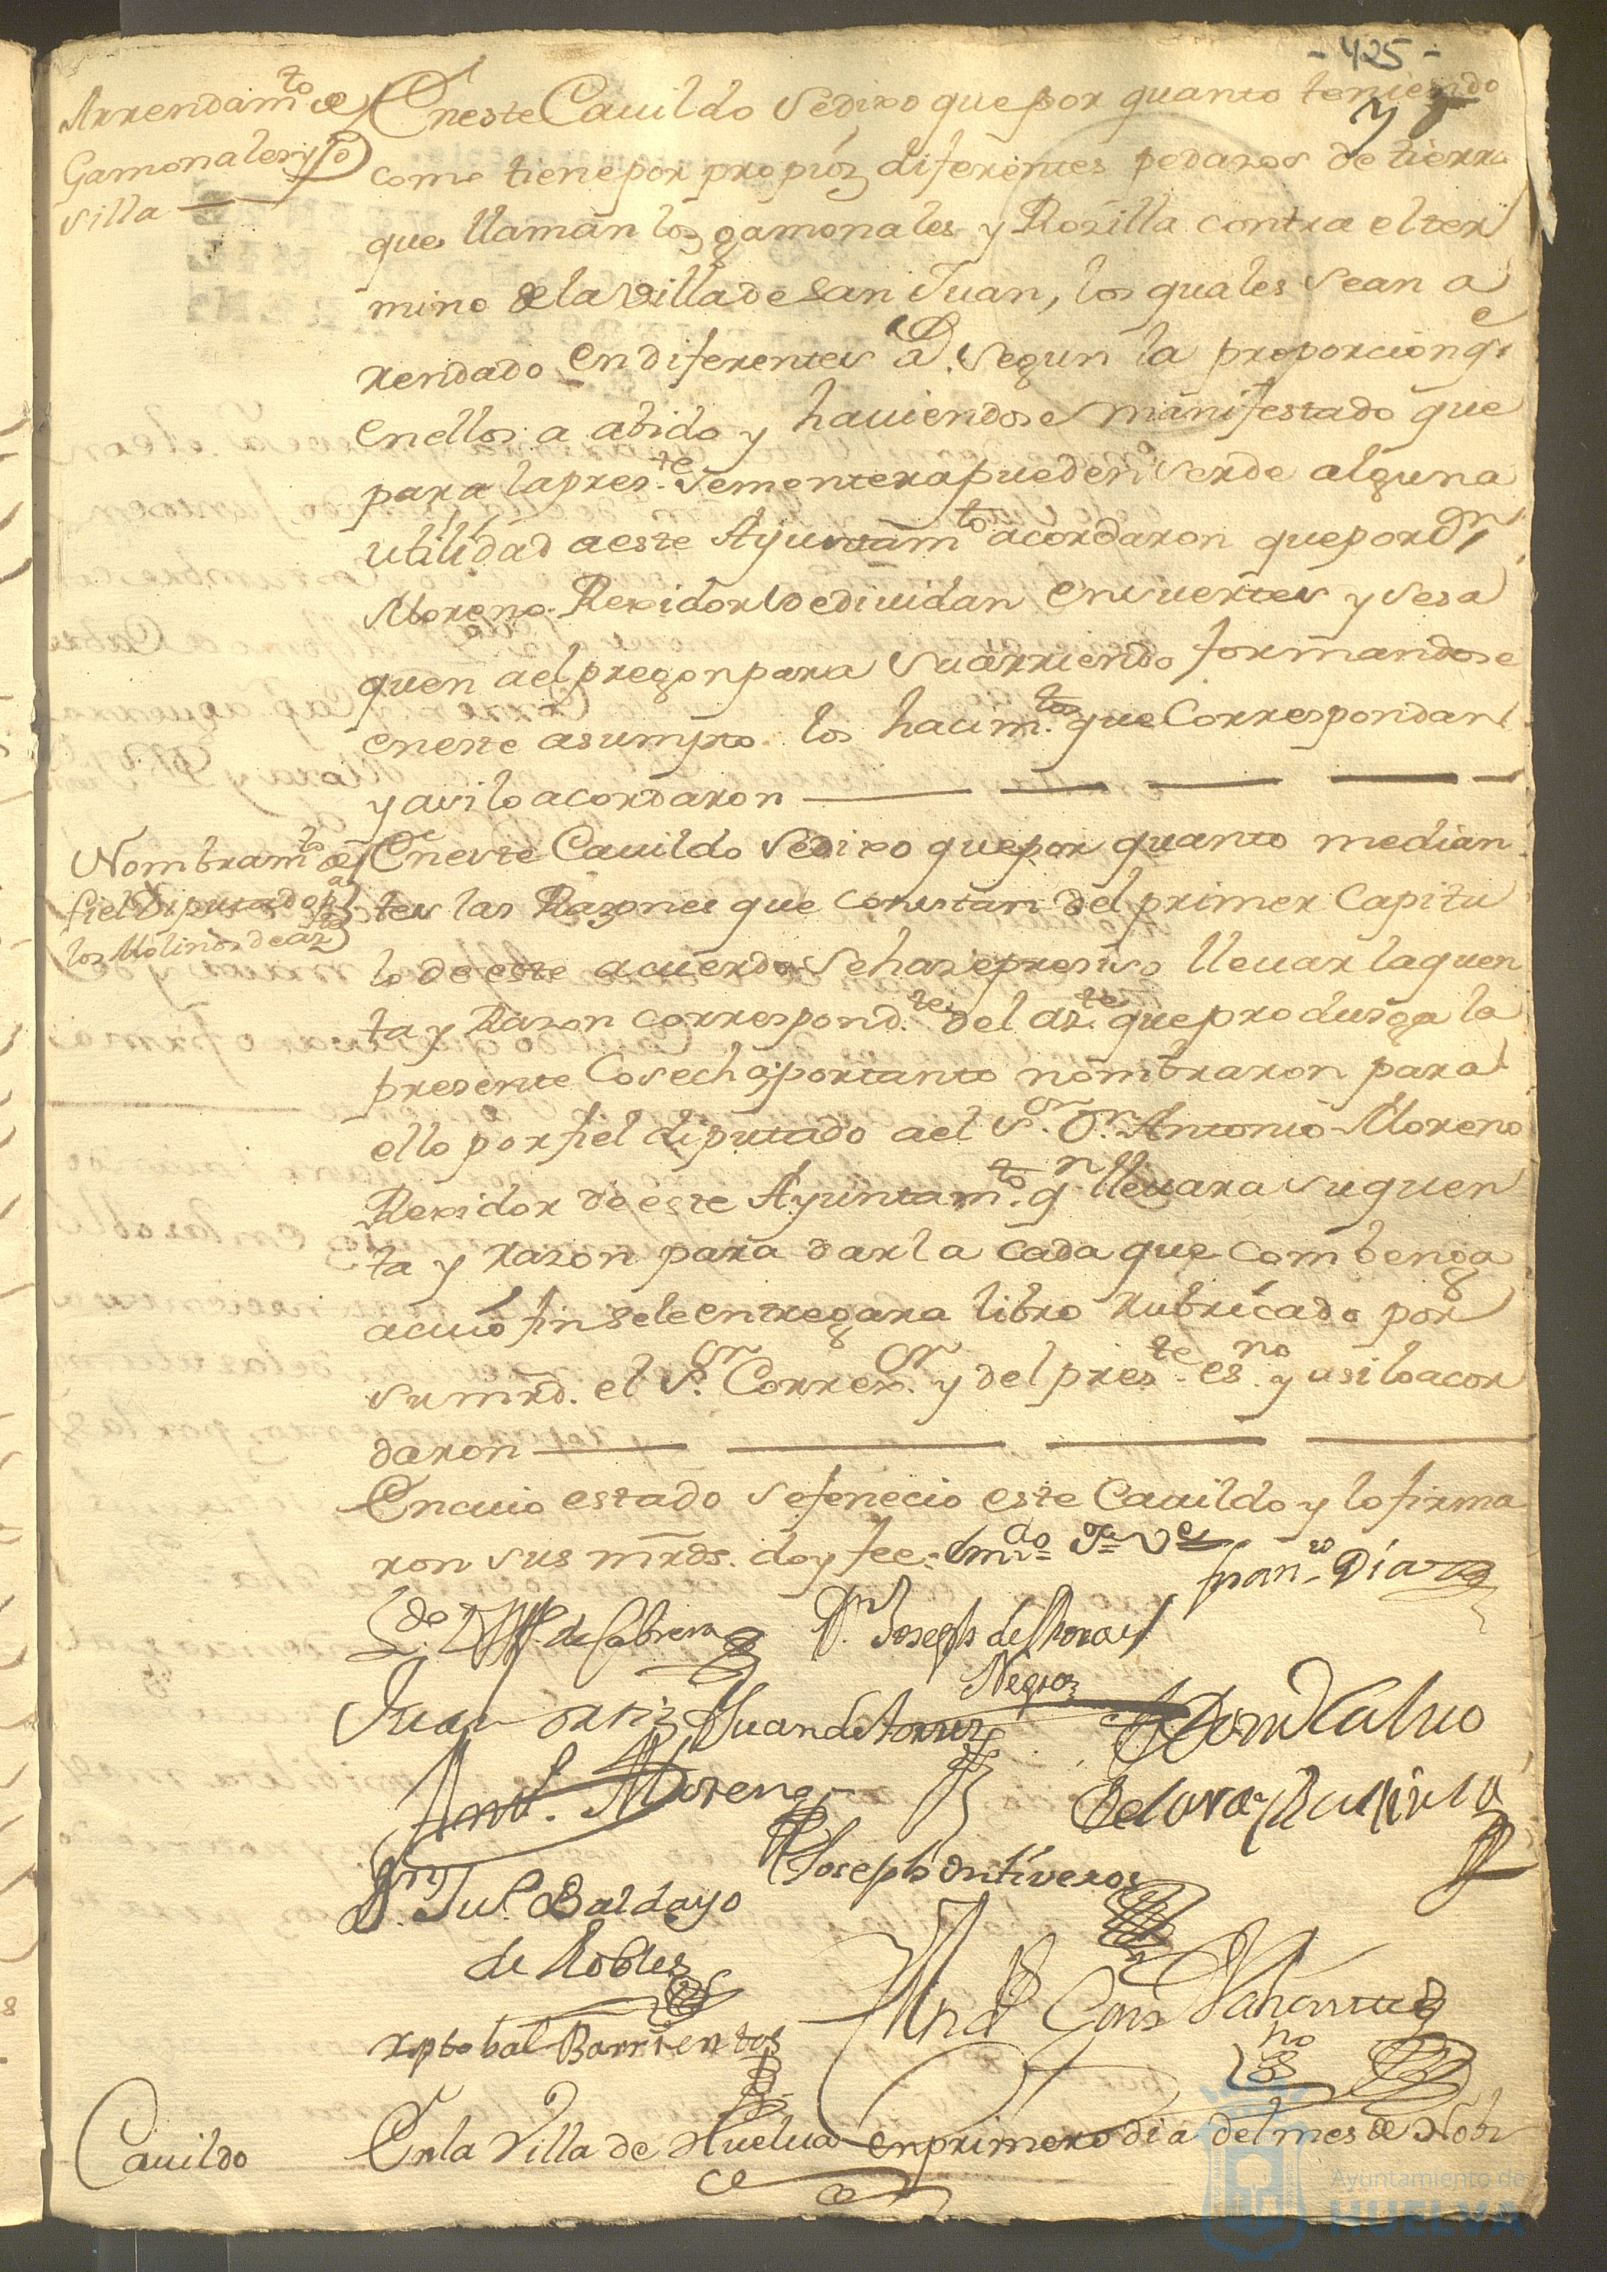 - 425 -
Arrendamto de
Gamonales y Ro
silla
En este Cauildo se dixo que por quanto teniendo
como tiene por propios diferentes pedasos de tierra
que llaman los gamonales y Rosilla contra el ter
mino de la Villa de San Juan, los quales se an a
rendado en diferentes as. segun la proporcion qe
en ellos a abido y hauiendose manifestado que
para la preste. sementera pueden ser de alguna
utilidad a este Ayuntamto acordaron que por Dn
Moreno Rexidor se diuidan en suertes y se sa
quen a el pregon para su arriendo formandose
en este asumpto los hacimtos. que Correspondan
y asi lo acordaron
Nombramto de
fiel Diputado pa
los Molinos de azte
En este Cauildo se dixo que por quanto median
tes las Razones que constan del primer Capitu
lo de este acuerdo se hase presiso lleuar la quen
ta y Razon correspondte. del azte. que produsga la
presente Cosecha; por tanto nombraron para
ello por fiel diputado a el Sor. Dn. Antonio Moreno
Rexidor de este Ayuntamto. qn lleuara su quen
ta y razon para darla cada que combenga
a cuio fin se le entregara libro rubricado por
su mrd. el Sor. Correxor. y del preste. esno. y asi lo acor
daron
En cuio estado se fenecio este Cauildo y lo firma
ron sus mrds. doy fee = Emdo =
Franco. Diaz
Ldo. de Cabrera
Dn. Joseph de Moraes
Negro
Juan Ortiz
Juan de Torres
Domo Caluo
Anto. Moreno
Joseph Ontiveros
Dn. Juo. Baldayo
de Robles
xptobal Barrientos
Cauildo
En la Villa de Huelua en primero dia del mes de Nobi
Ayuntamiento de
HUELVA